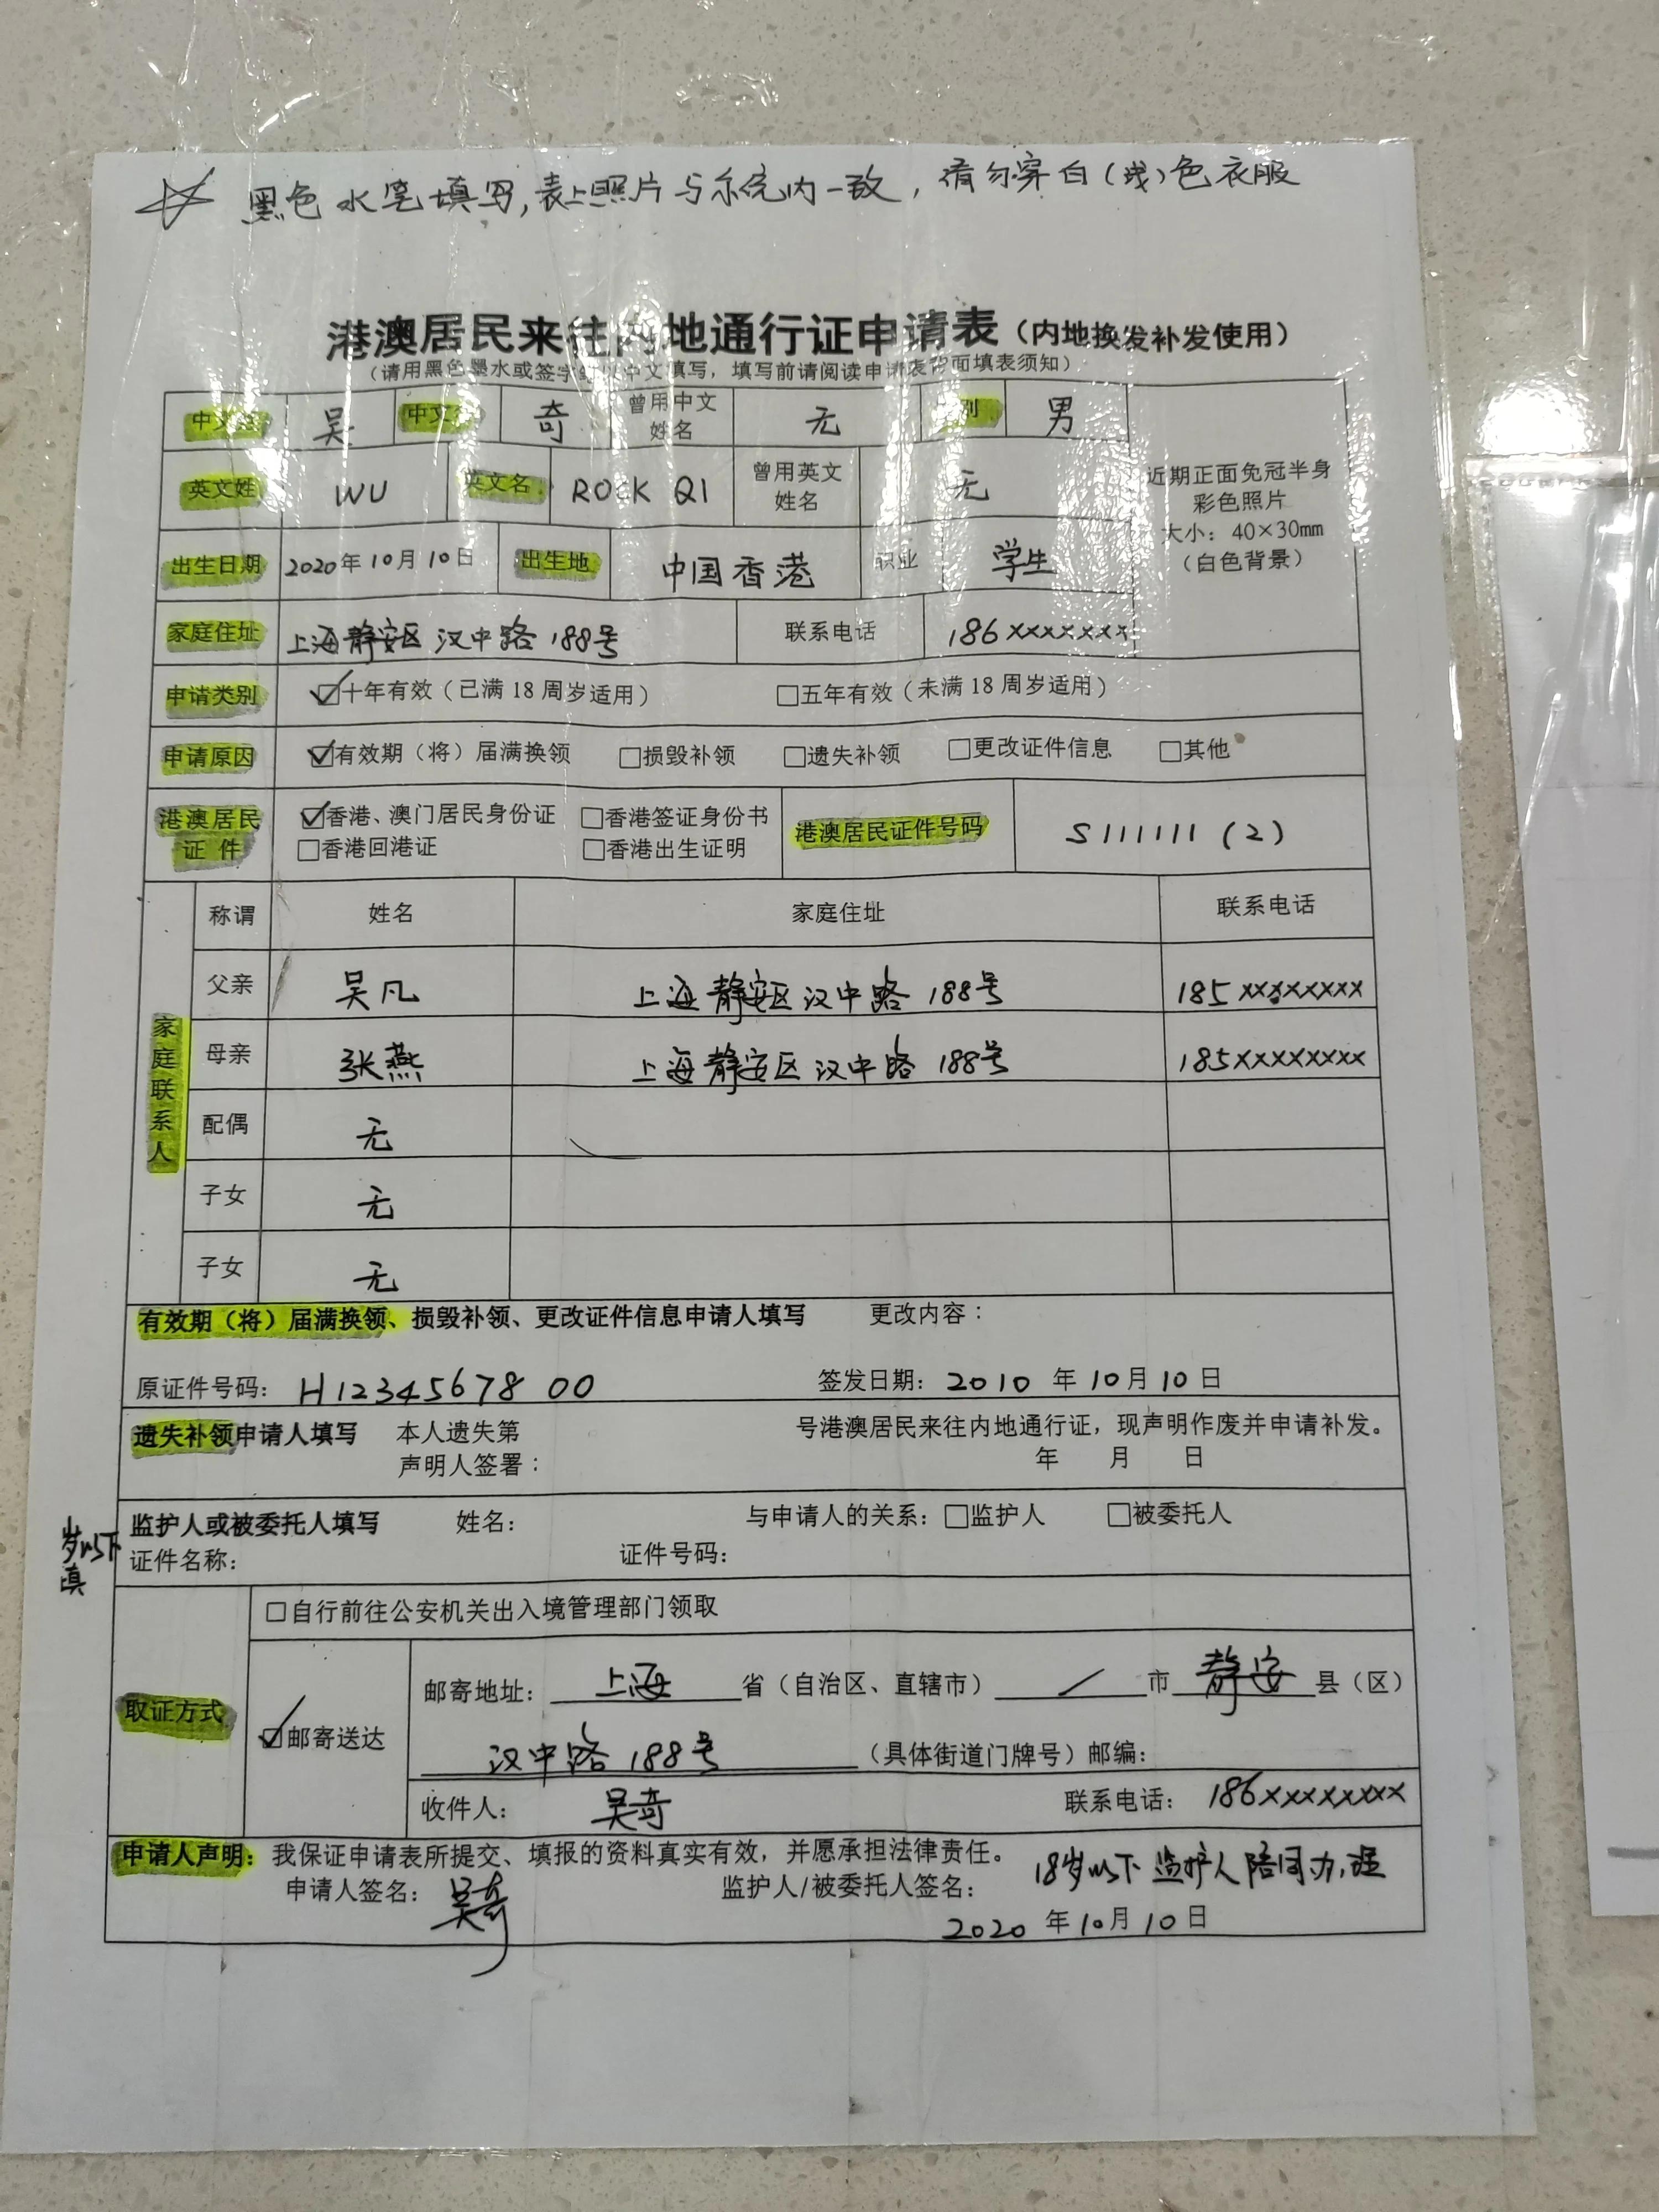 黑色水笔填写,表上照片与系统内一致,请勿穿白(浅)色衣服
港澳居民来往内地通行证申请表(内地换发补发使用)
(请用黑色墨水或签字笔以中文填写,填写前请阅读申请表背面填表须知)
中文姓 吴 中文名 奇 曾用中文姓名 无 性别 男
英文姓 WU 英文名 ROCK QI 曾用英文姓名 无
近期正面免冠半身
彩色照片
大小:40×30mm
(白色背景)
出生日期 2020年10月10日 出生地 中国香港 职业 学生
家庭住址 上海静安区汉中路188号 联系电话 186xxxxxxxx
申请类别 ☑十年有效(已满18周岁适用) □五年有效(未满18周岁适用)
申请原因 ☑有效期(将)届满换领 □损毁补领 □遗失补领 □更改证件信息 □其他
港澳居民证件 ☑香港、澳门居民身份证 □香港签证身份书 港澳居民证件号码 S111111(2)
□香港回港证 □香港出生证明
家庭联系人
称谓 姓名 家庭住址 联系电话
父亲 吴凡 上海静安区汉中路188号 185xxxxxxxx
母亲 张燕 上海静安区汉中路188号 185xxxxxxxx
配偶 无
子女 无
子女 无
有效期(将)届满换领、损毁补领、更改证件信息申请人填写 更改内容:
原证件号码: H12345678 00 签发日期: 2010年10月10日
遗失补领申请人填写 本人遗失第 号港澳居民来往内地通行证,现声明作废并申请补发。
声明人签署: 年 月 日
岁以下
填
监护人或被委托人填写 姓名: 与申请人的关系:□监护人 □被委托人
证件名称: 证件号码:
取证方式
□自行前往公安机关出入境管理部门领取
☑邮寄送达
邮寄地址: 上海 省(自治区、直辖市) / 市 静安 县(区)
汉中路188号 (具体街道门牌号)邮编:
收件人: 吴奇 联系电话: 186xxxxxxxx
申请人声明:我保证申请表所提交、填报的资料真实有效,并愿承担法律责任。
申请人签名: 吴奇 监护人/被委托人签名: 18岁以下监护人陪同办理
2020年10月10日